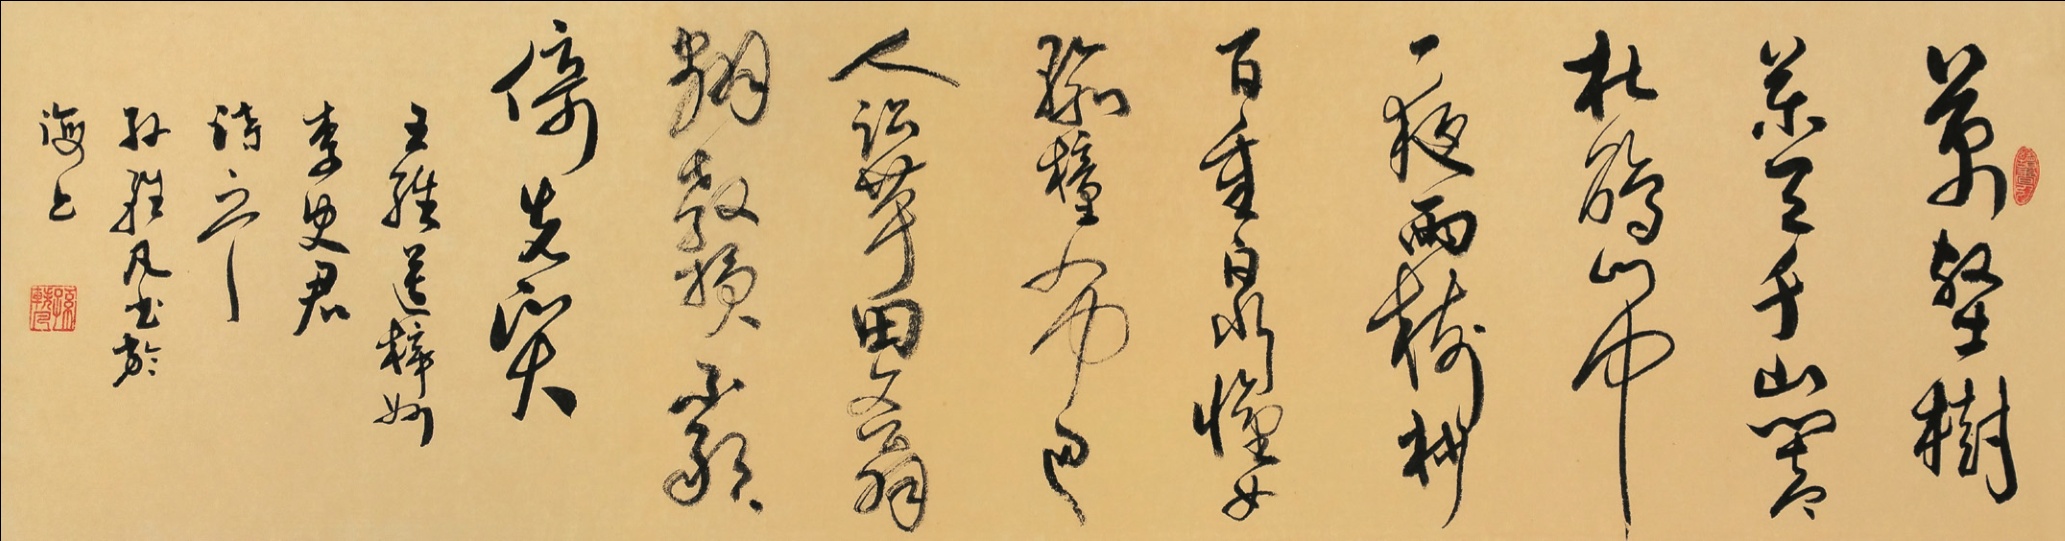 萬壑樹
參天千山響
杜鵑山中
一夜雨樹杪
百重泉漢女
輸橦布巴
人訟芋田文翁
翻教授不敢
倚先賢
王維送梓州
李使君
詩
孫凡書於
海上